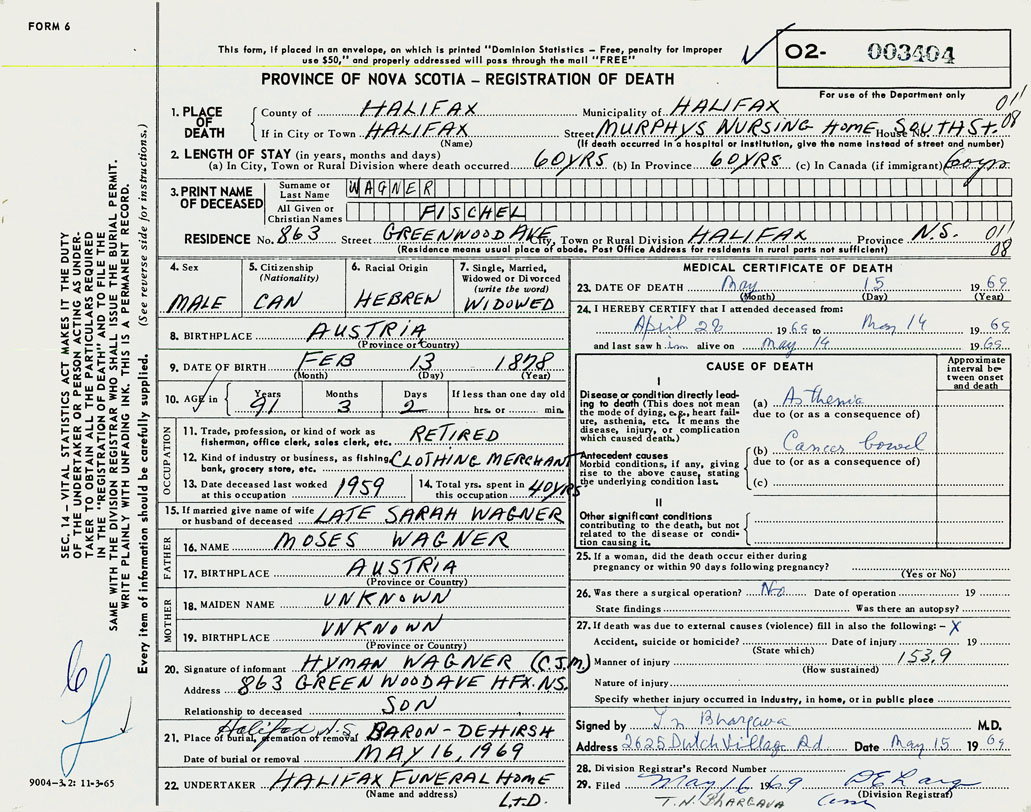 FORM 6
This form, if placed in an envelope, on which is printed "Dominion Statistics – Free, penalty for improper
use $50," and properly addressed will pass through the mail "FREE"
O2- 003404
For use of the Department only
PROVINCE OF NOVA SCOTIA – REGISTRATION OF DEATH
1. PLACE OF DEATH
County of HALIFAX Municipality of HALIFAX 011
If in City or Town HALIFAX Street MURPHYS NURSING HOME House No. SOUTH ST. 08
(Name) (If death occurred in a hospital or institution, give the name instead of street and number)
2. LENGTH OF STAY (in years, months and days)
(a) In City, Town or Rural Division where death occurred 60YRS (b) In Province 60YRS (c) In Canada (if immigrant) 60yrs.
3. PRINT NAME OF DECEASED
Surname or Last Name WAGNER
All Given or Christian Names FISCHEL
RESIDENCE No. 863 Street GREENWOOD AVE City, Town or Rural Division HALIFAX Province N.S. 011
(Residence means usual place of abode. Post Office Address for residents in rural parts not sufficient) 08
4. Sex
MALE
5. Citizenship
(Nationality)
CAN
6. Racial Origin
HEBREW
7. Single, Married,
Widowed or Divorced
(write the word)
WIDOWED
8. BIRTHPLACE AUSTRIA
(Province or Country)
9. DATE OF BIRTH FEB 13 1878
(Month) (Day) (Year)
10. AGE in Years Months Days If less than one day old
91 3 2 hrs. or min.
OCCUPATION
11. Trade, profession, or kind of work as
fisherman, office clerk, sales clerk, etc. RETIRED
12. Kind of industry or business, as fishing,
bank, grocery store, etc. CLOTHING MERCHANT
13. Date deceased last worked
at this occupation 1959
14. Total yrs. spent in
this occupation 40YRS
15. If married give name of wife
or husband of deceased LATE SARAH WAGNER
FATHER
16. NAME MOSES WAGNER
17. BIRTHPLACE AUSTRIA
(Province or Country)
MOTHER
18. MAIDEN NAME UNKNOWN
19. BIRTHPLACE UNKNOWN
(Province or Country)
20. Signature of informant HYMAN WAGNER (C.J.M.)
Address 863 GREENWOOD AVE HFX. NS.
Relationship to deceased SON
Halifax N.S.
21. Place of burial, cremation or removal BARON-DEHIRSH
Date of burial or removal MAY 16, 1969
22. UNDERTAKER HALIFAX FUNERAL HOME
(Name and address) LTD.
MEDICAL CERTIFICATE OF DEATH
23. DATE OF DEATH May 15 1969
(Month) (Day) (Year)
24. I HEREBY CERTIFY that I attended deceased from:
April 28 1969 to May 14 1969
and last saw him alive on May 14 1969
CAUSE OF DEATH
Approximate
interval be-
tween onset
and death
I
Disease or condition directly lead-
ing to death (This does not mean
the mode of dying, e.g., heart fail-
ure, asthenia, etc. It means the
disease, injury, or complication
which caused death.)
(a) Asthenia
due to (or as a consequence of)
Antecedent causes
Morbid conditions, if any, giving
rise to the above cause, stating
the underlying condition last.
(b) Cancer bowel
due to (or as a consequence of)
(c)
II
Other significant conditions
contributing to the death, but not
related to the disease or condi-
tion causing it.
25. If a woman, did the death occur either during
pregnancy or within 90 days following pregnancy?
(Yes or No)
26. Was there a surgical operation? No Date of operation 19
State findings Was there an autopsy?
27. If death was due to external causes (violence) fill in also the following: – X
Accident, suicide or homicide? Date of injury 19
(State which)
Manner of injury 153.9
(How sustained)
Nature of injury
Specify whether injury occurred in industry, in home, or in public place
Signed by T.N Bhargava M.D.
Address 2625 Dutch Village Rd Date May 15 1969
28. Division Registrar's Record Number
29. Filed May 16 1969
(Division Registrar)
T.N. BHARGAVA
SEC. 14 – VITAL STATISTICS ACT MAKES IT THE DUTY
OF THE UNDERTAKER OR PERSON ACTING AS UNDER-
TAKER TO OBTAIN ALL THE PARTICULARS REQUIRED
IN THE "REGISTRATION OF DEATH" AND TO FILE THE
SAME WITH THE DIVISION REGISTRAR WHO SHALL ISSUE THE BURIAL PERMIT.
WRITE PLAINLY WITH UNFADING INK. THIS IS A PERMANENT RECORD.
Every item of information should be carefully supplied. (See reverse side for instructions.)
9004-3.2: 11-3-65